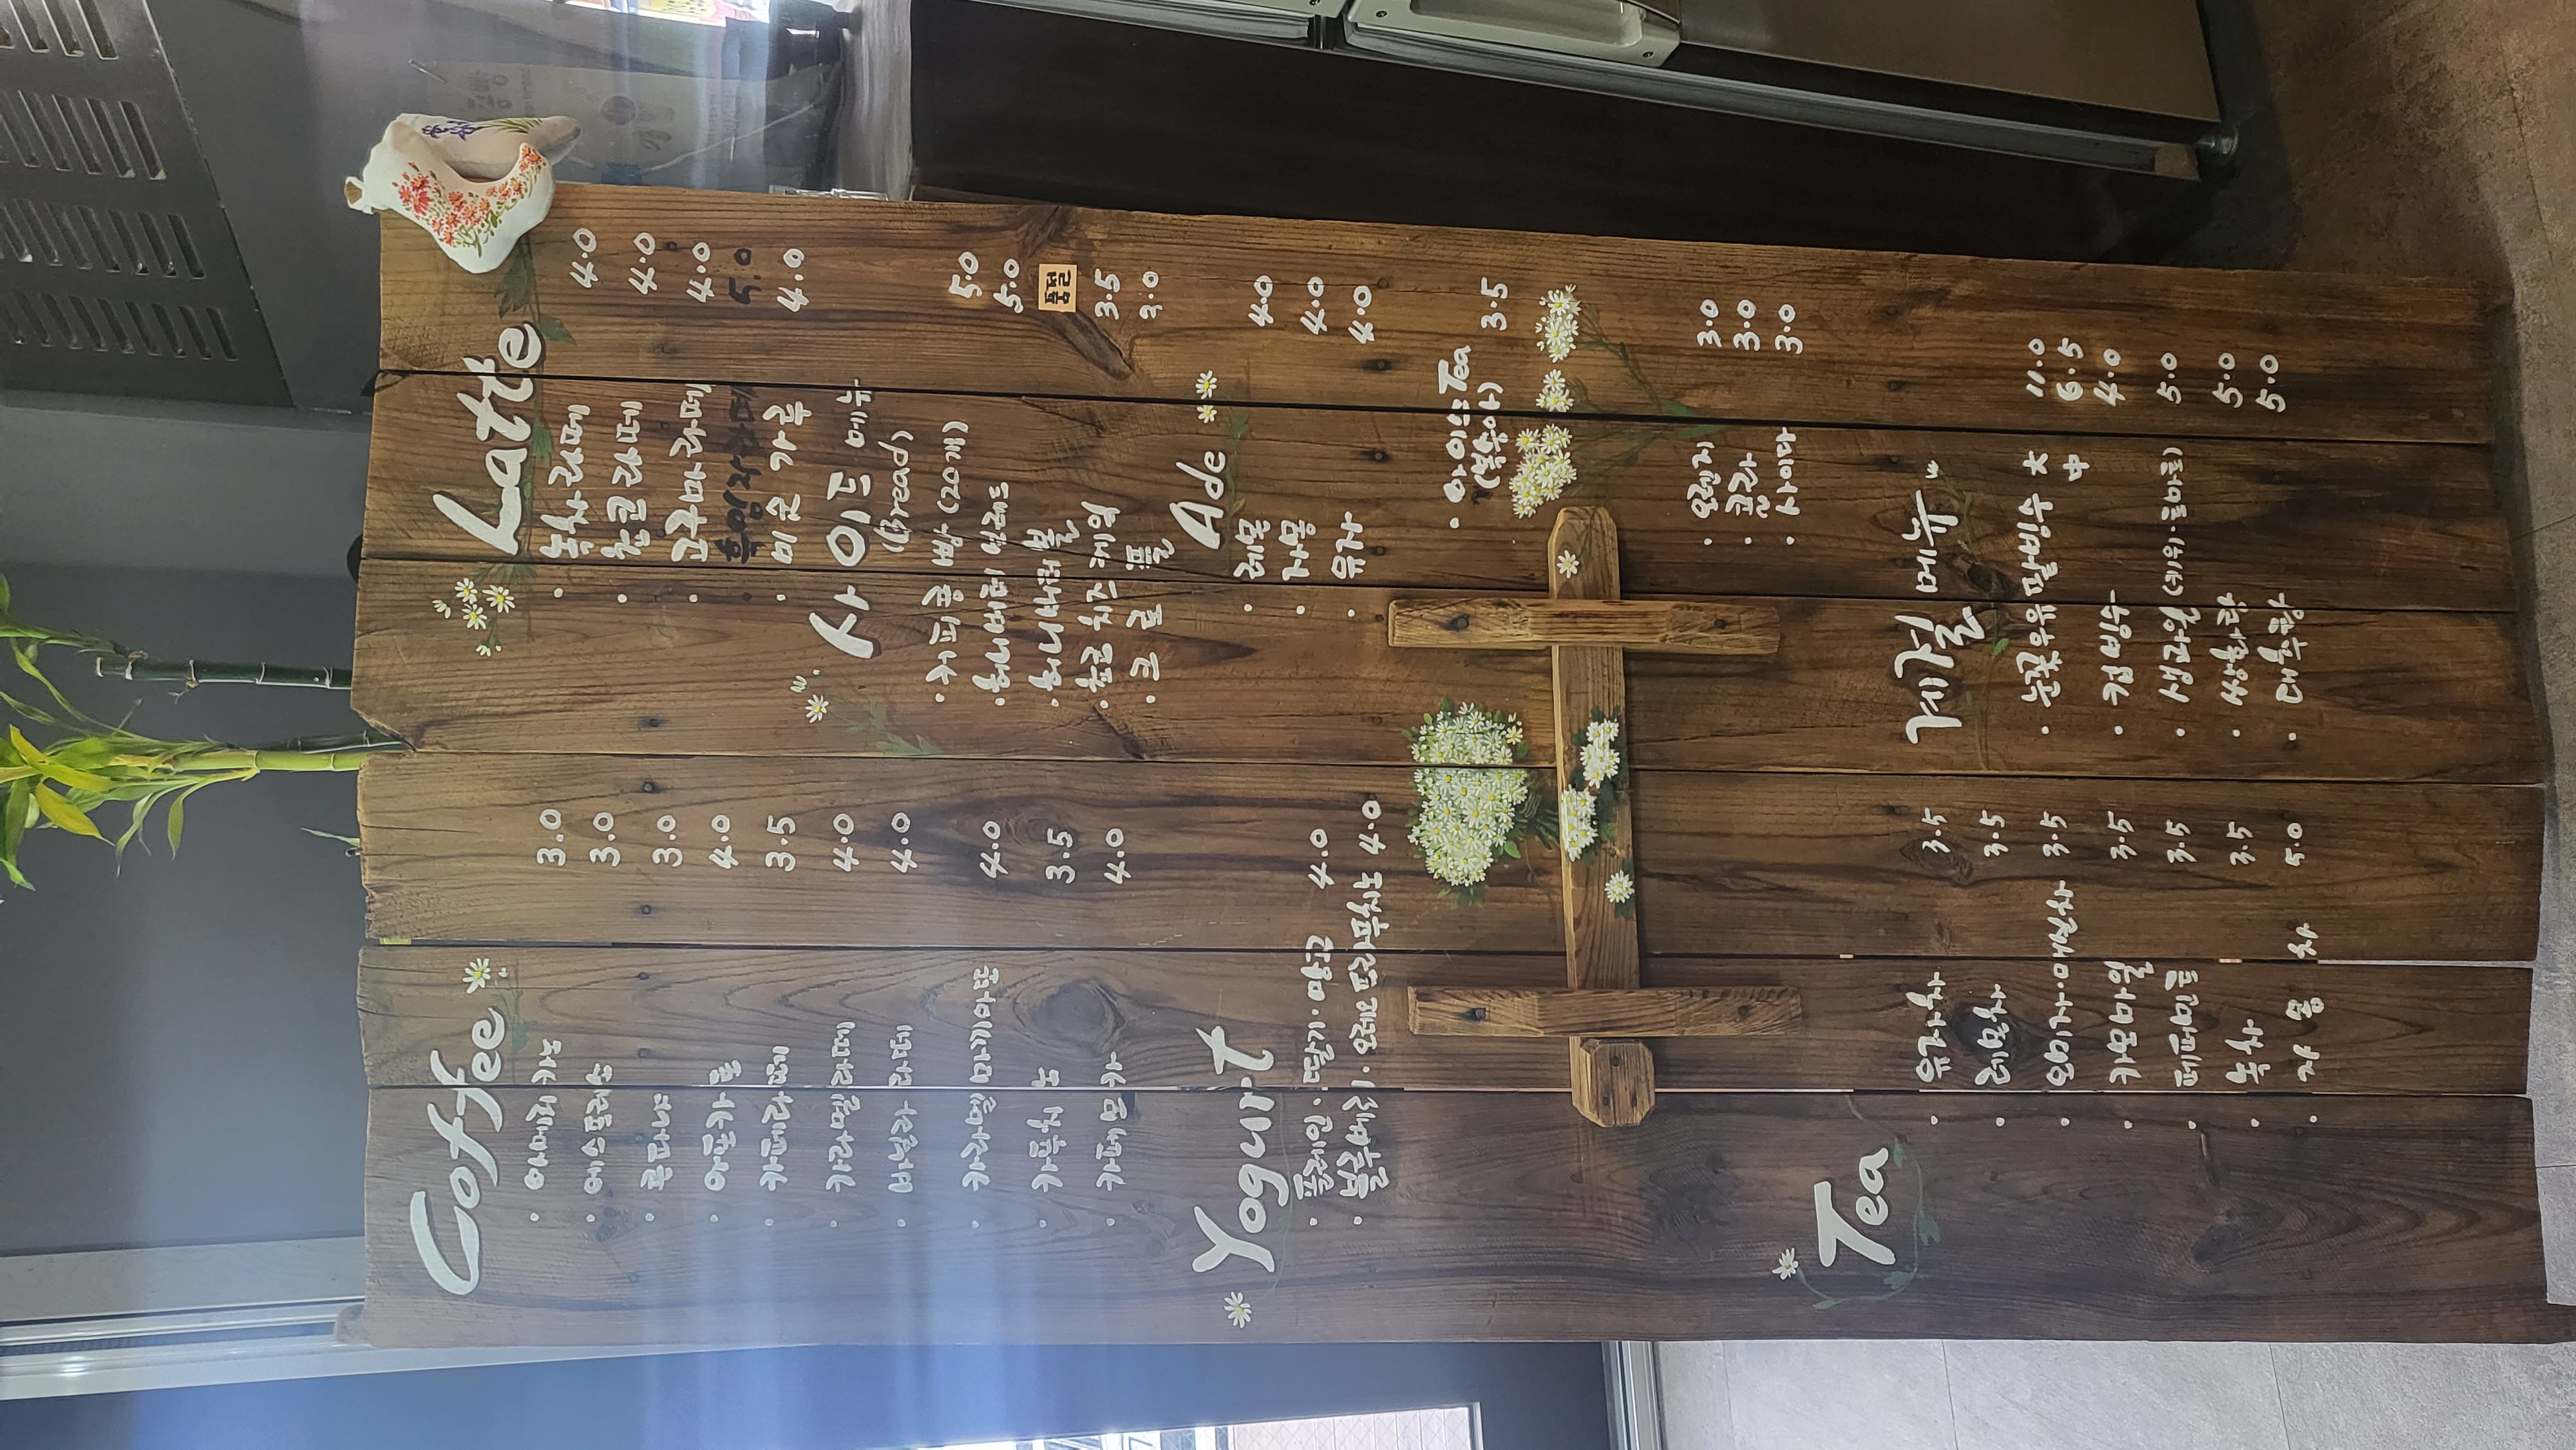 Coffee
· 아메리카노 3.0
· 에스프레소 3.0
· 콘파나 3.0
· 아포가토 4.0
· 카페라떼 3.5
· 4.0
· 바닐라라떼 4.0
· 카라멜마끼아또 4.0
· 카푸치노 3.5
· 카페모카 4.0
Yogurt
· 플레인·딸기·망고 4.0
· 블루베리·오곡 4.0
Tea
· 유자차 3.5
· 레몬차 3.5
· 오미자·매실차 3.5
· 카모마일 3.5
· 페퍼민트 3.5
· 녹차 3.5
· 자몽차 5.0
Latte
· 녹차라떼 4.0
· 초코라떼 4.0
· 고구마라떼 4.0
5.0
· 미숫가루 4.0
사이드 메뉴
(Bread)
· 빵 (20개) 5.0
· 허니버터브레드 5.0
· 허니 품절
· 치즈케익 3.5
· 크로플 3.0
Ade
· 레몬 4.0
· 자몽 4.0
· 유자 4.0
· 아이스Tea 3.5
(복숭아)
· 오렌지 3.0
· 콜라 3.0
· 사이다 3.0
계절 메뉴
· 눈꽃우유팥빙수 大 11.0
中 6.5
· 컵빙수 4.0
· 생과일 (키위·토마토) 5.0
· 쌍화탕 5.0
· 대추탕 5.0